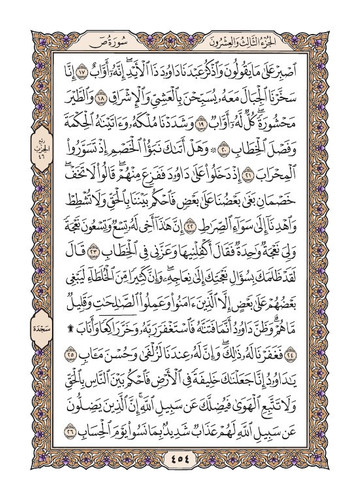 الجزء الثالث والعشرون
سورة ص
اصبر على ما يقولون واذكر عبدنا داود ذا الأيد إنه أواب ١٧ إنا
سخرنا الجبال معه يسبحن بالعشي والإشراق ١٨ والطير
محشورة كل له أواب ١٩ وشددنا ملكه وءاتينه الحكمة
وفصل الخطاب ٢٠ ۞ وهل أتىك نبؤا الخصم إذ تسوروا
المحراب ٢١ إذ دخلوا على داود ففزع منهم قالوا لا تخف
خصمان بغى بعضنا على بعض فاحكم بيننا بالحق ولا تشطط
واهدنا إلى سواء الصراط ٢٢ إن هذا أخي له تسع وتسعون نعجة
ولي نعجة وحدة فقال أكفلنيها وعزني في الخطاب ٢٣ قال
لقد ظلمك بسؤال نعجتك إلى نعاجه وإن كثيرا من الخلطاء ليبغي
بعضهم على بعض إلا الذين ءامنوا وعملوا الصلحت وقليل
ما هم وظن داود أنما فتنه فاستغفر ربه وخر راكعا وأناب ۩
٢٤ فغفرنا له ذلك وإن له عندنا لزلفى وحسن مئاب ٢٥
يداود إنا جعلنك خليفة في الأرض فاحكم بين الناس بالحق
ولا تتبع الهوى فيضلك عن سبيل الله إن الذين يضلون
عن سبيل الله لهم عذاب شديد بما نسوا يوم الحساب ٢٦
سجدة
٤٥٤